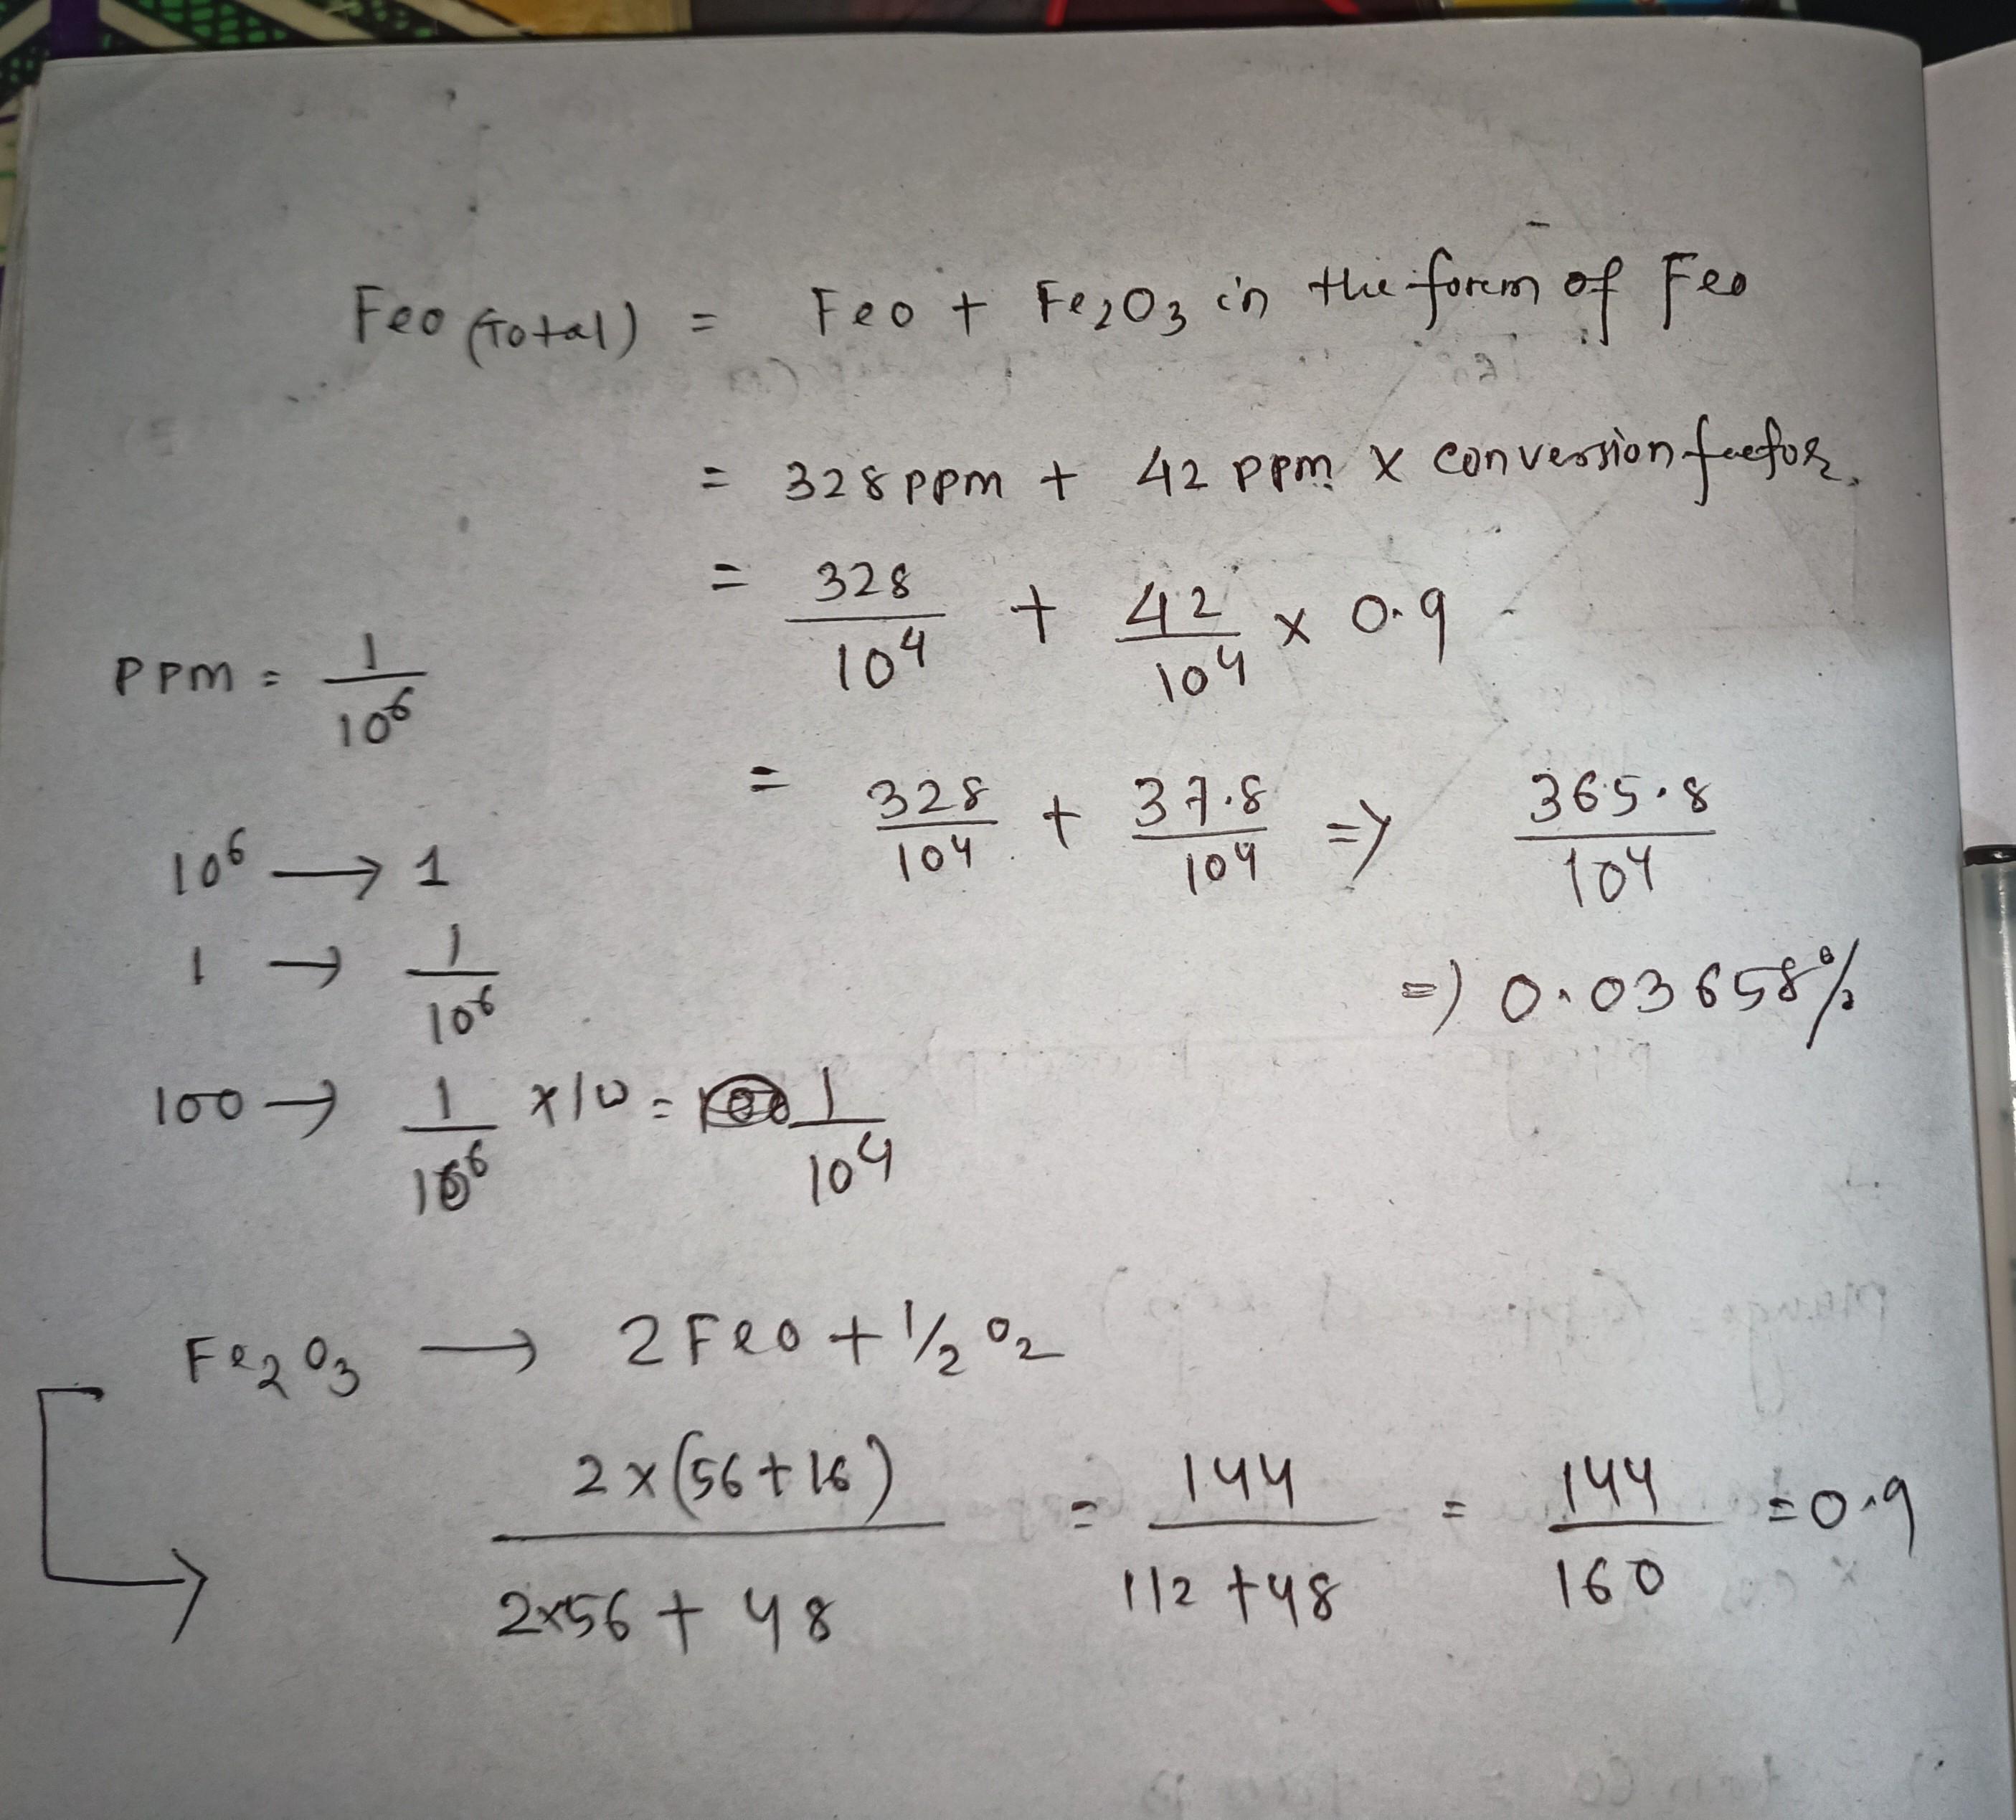 Feo (Total) = Feo + Fe₂O₃ in the form of Feo
= 328 ppm + 42 ppm x conversion factor.
= 328/10⁴ + 42/10⁴ x 0.9
PPM = 1/10⁶
= 328/10⁴ + 37.8/10⁴ => 365.8/10⁴
10⁶ → 1
1 → 1/10⁶
=) 0.03658%
100 → 1/10⁶ x 100 = 1/10⁴
Fe₂O₃ → 2Feo + 1/2 O₂
2x(56+16)/2x56 + 48 = 144/112+48 = 144/160 = 0.9